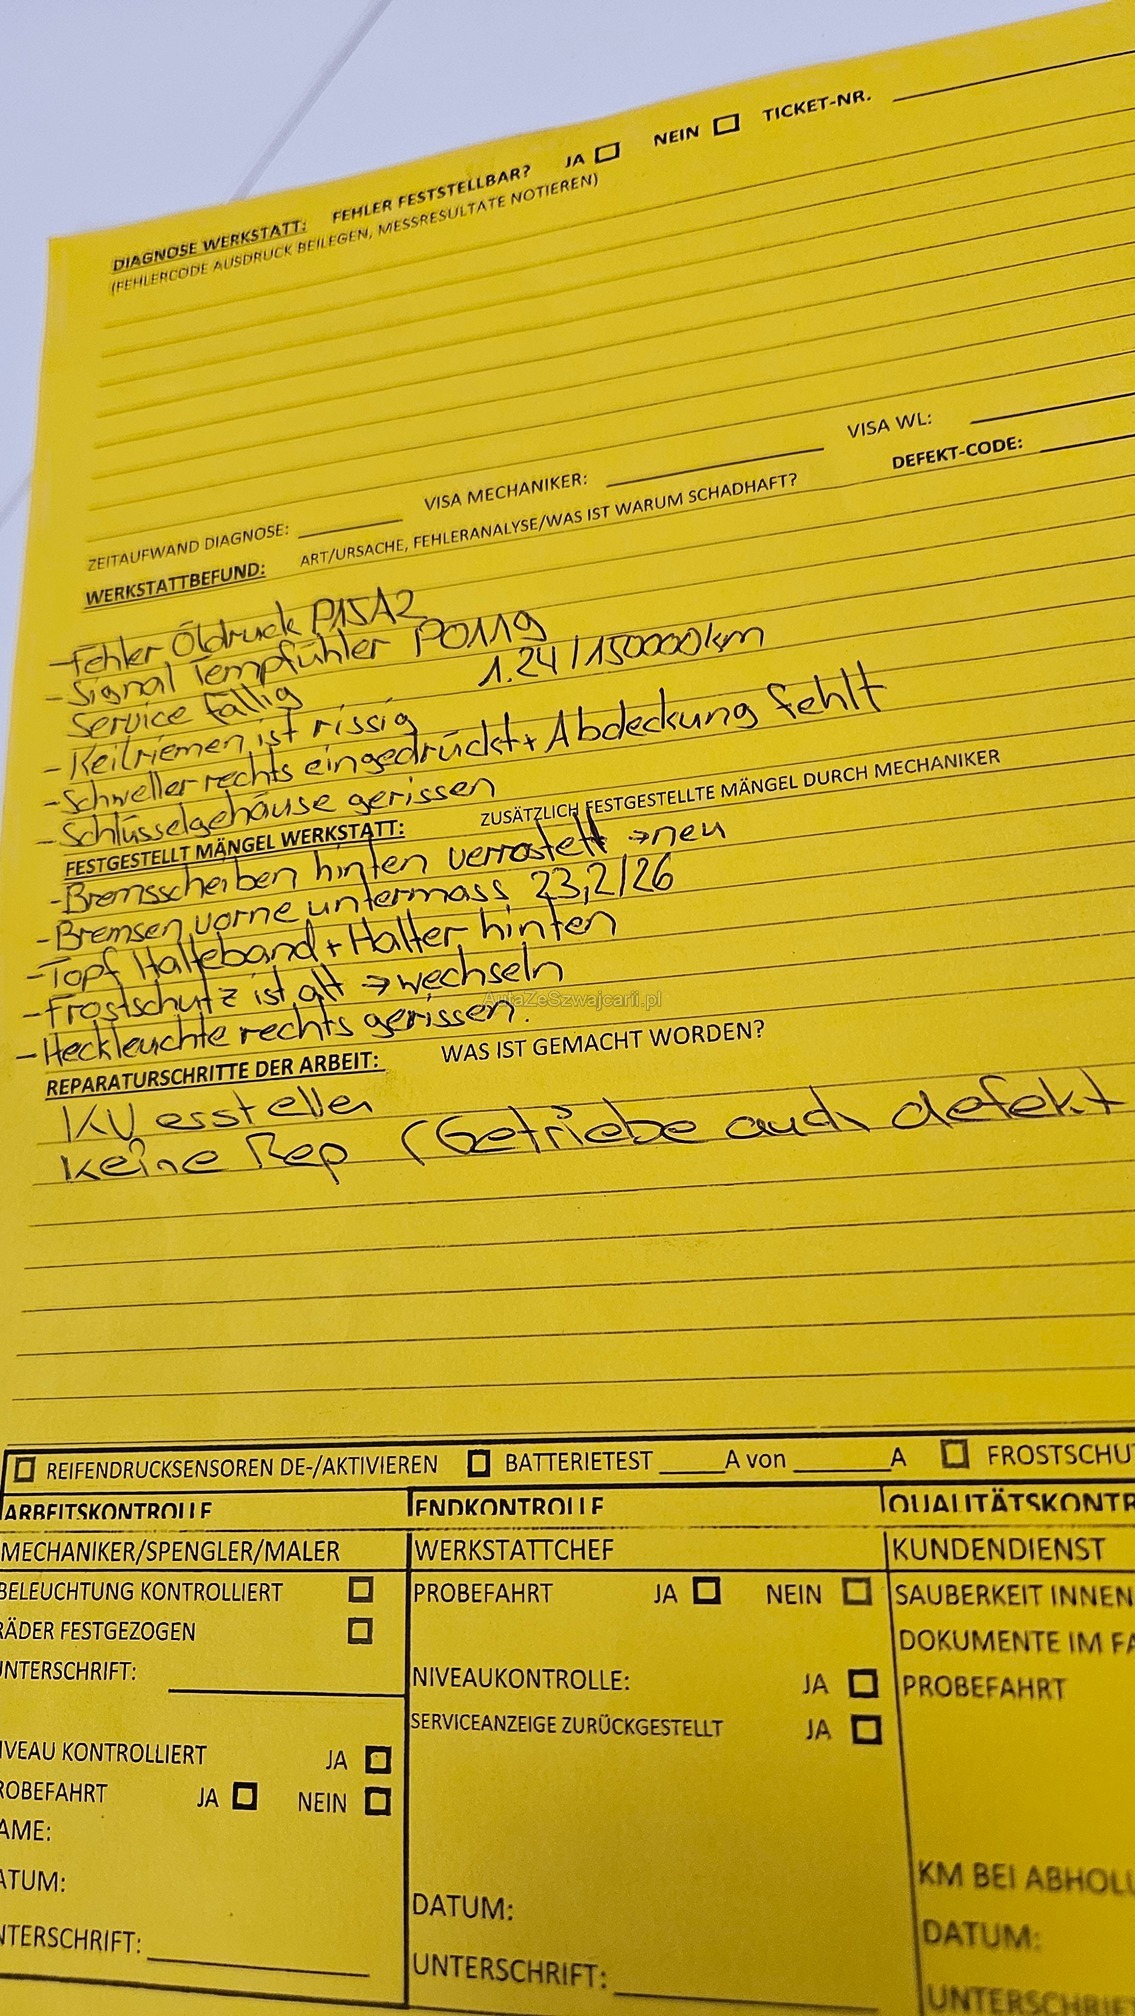 DIAGNOSE WERKSTATT: FEHLER FESTSTELLBAR? JA NEIN TICKET-NR.
(FEHLERCODE AUSDRUCK BEILEGEN, MESSRESULTATE NOTIEREN)
ZEITAUFWAND DIAGNOSE: VISA MECHANIKER: VISA WL:
WERKSTATTBEFUND: ART/URSACHE, FEHLERANALYSE/WAS IST WARUM SCHADHAFT? DEFEKT-CODE:
-Fehler Öldruck P15A2
-Signal Tempfühler P0119
Service fällig 1.24 / 150000km
- Keilriemen ist rissig
-Schweller rechts eingedrückt + Abdeckung fehlt
- Schlüsselgehäuse gerissen
FESTGESTELLT MÄNGEL WERKSTATT: ZUSÄTZLICH FESTGESTELLTE MÄNGEL DURCH MECHANIKER
-Bremsscheiben hinten verrostett →neu
-Bremsen vorne untermass 23,2/26
-Topf Halteband + Halter hinten
-Frostschutz ist alt → wechseln
-Heckleuchte rechts gerissen.
AutaZeSzwajcarii.pl
REPARATURSCHRITTE DER ARBEIT: WAS IST GEMACHT WORDEN?
KV erstellen
Keine Rep (Getriebe auch defekt
REIFENDRUCKSENSOREN DE-/AKTIVIEREN BATTERIETEST A von A FROSTSCHU
ARBEITSKONTROLLE ENDKONTROLLE QUALITÄTSKONTR
MECHANIKER/SPENGLER/MALER WERKSTATTCHEF KUNDENDIENST
BELEUCHTUNG KONTROLLIERT PROBEFAHRT JA NEIN SAUBERKEIT INNEN
RÄDER FESTGEZOGEN DOKUMENTE IM FA
UNTERSCHRIFT: NIVEAUKONTROLLE: JA PROBEFAHRT
SERVICEANZEIGE ZURÜCKGESTELLT JA
IVEAU KONTROLLIERT JA
ROBEFAHRT JA NEIN
AME:
ATUM: KM BEI ABHOLU
DATUM: DATUM:
NTERSCHRIFT: UNTERSCHRIFT: UNTERSCHRIF